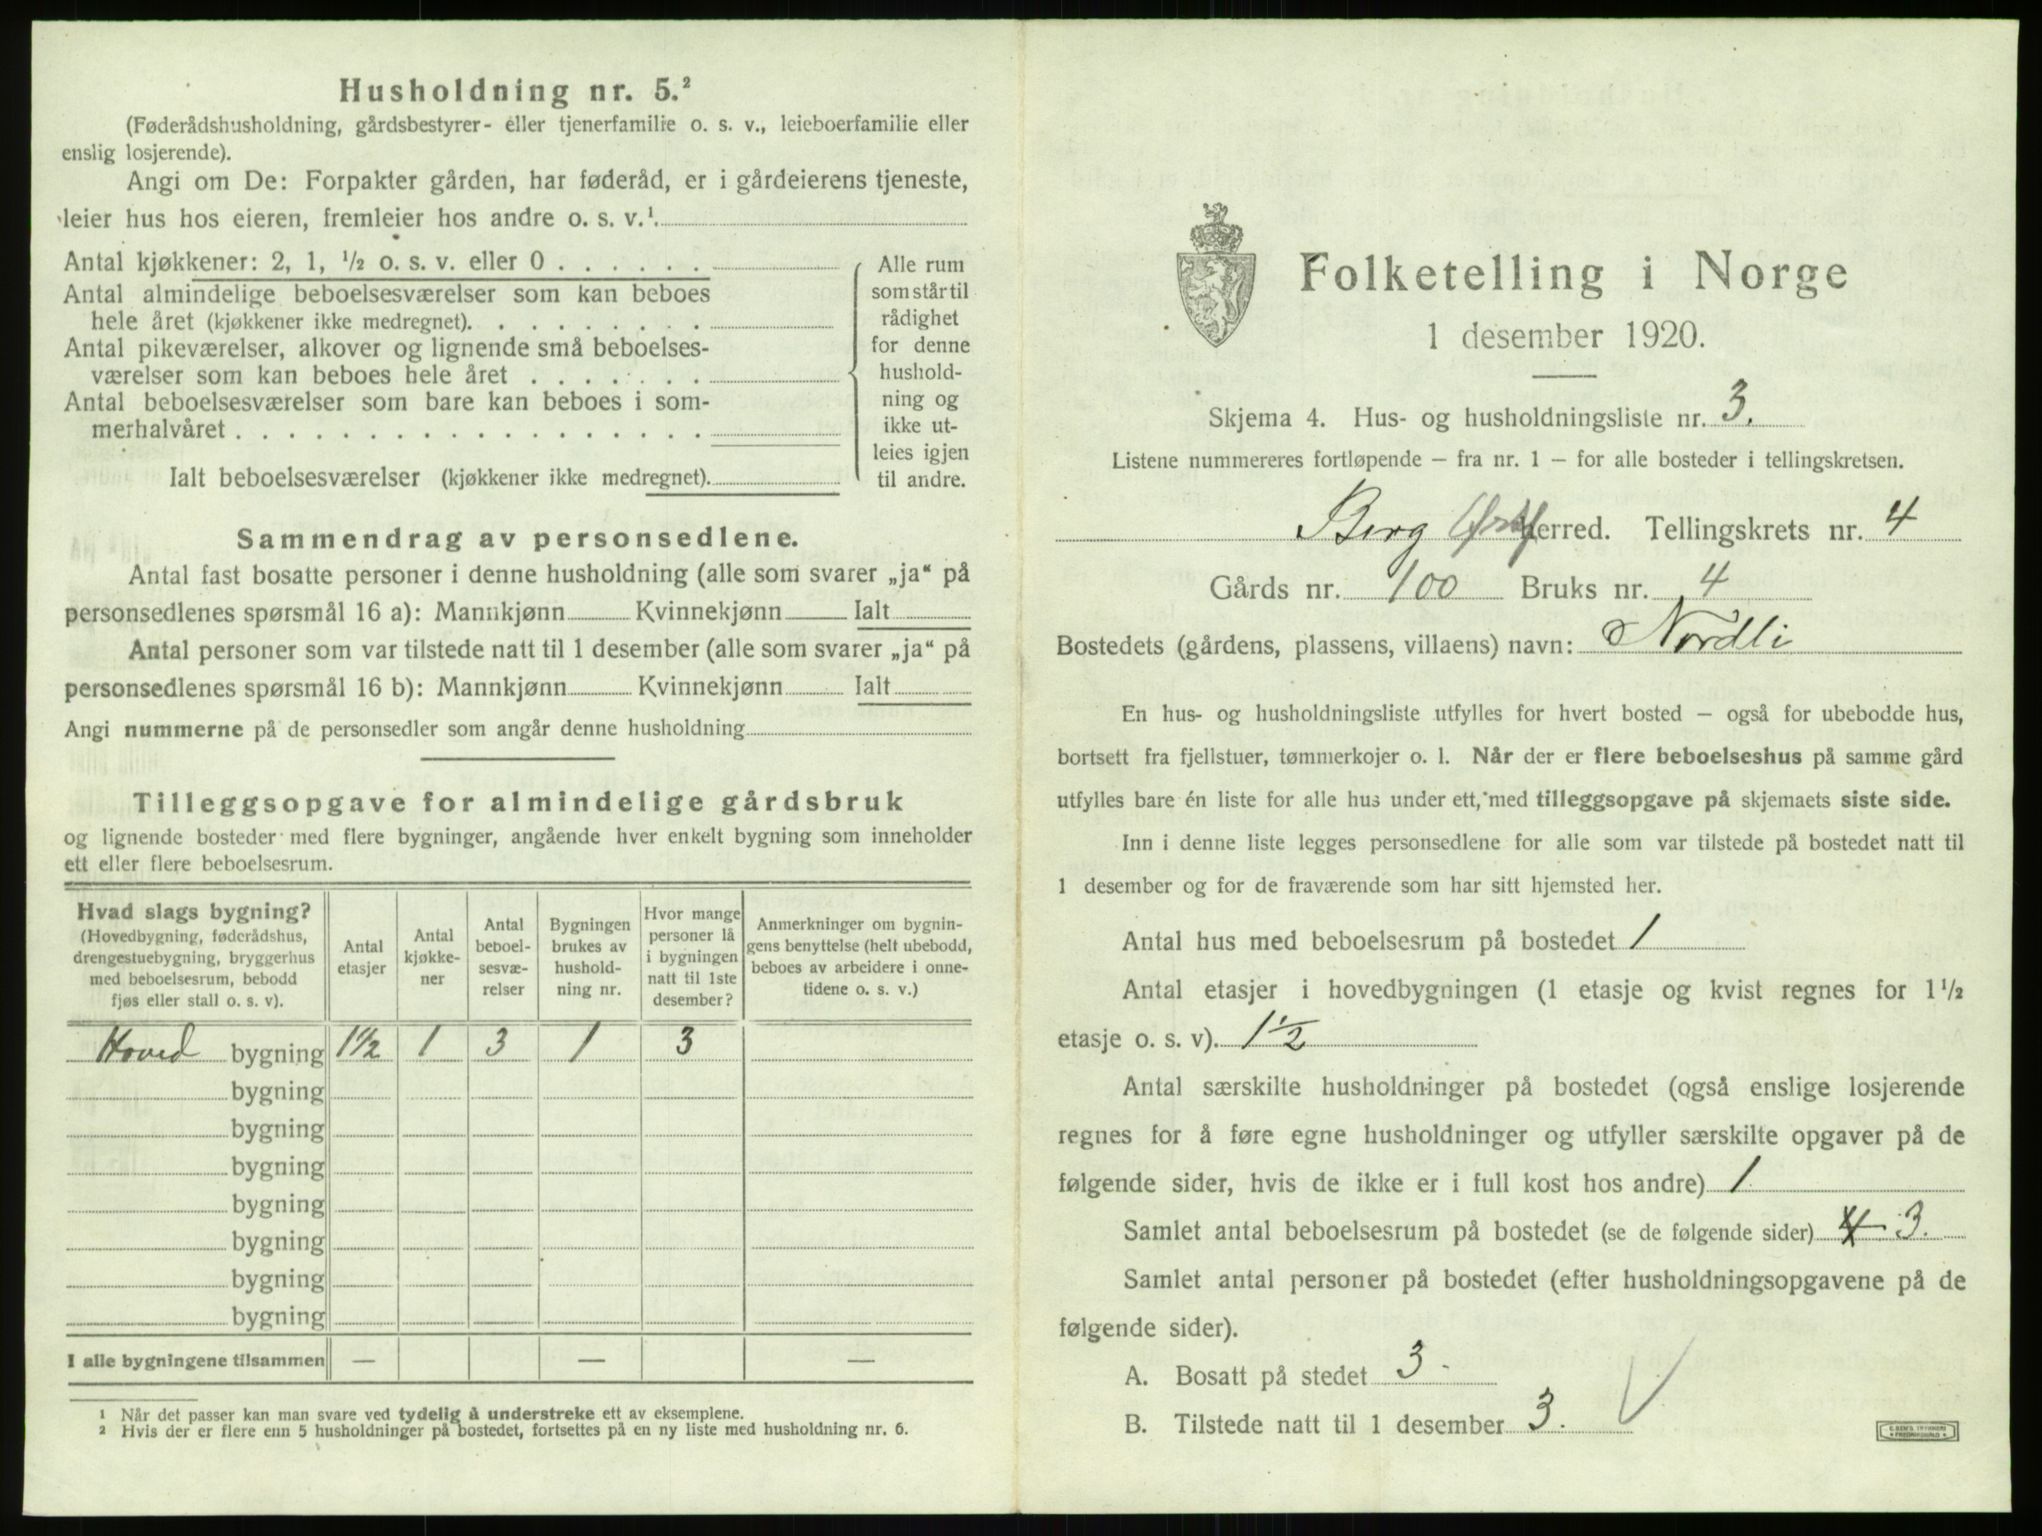 Husholdning nr. 5.²
(Føderådshusholdning, gårdsbestyrer- eller tjenerfamilie o. s. v., leieboerfamilie eller
enslig losjerende).
Angi om De: Forpakter gården, har føderåd, er i gårdeierens tjeneste,
leier hus hos eieren, fremleier hos andre o. s. v.¹
Antal kjøkkener: 2, 1, ½ o. s. v. eller 0 . . . . . .
Antal almindelige beboelsesværelser som kan beboes
hele året (kjøkkener ikke medregnet). . . . . . . . .
Antal pikeværelser, alkover og lignende små beboelses-
værelser som kan beboes hele året . . . . . . .
Antal beboelsesværelser som bare kan beboes i som-
merhalvåret . . . . . . . . . . . . . . . . . .
Ialt beboelsesværelser (kjøkkener ikke medregnet).
Alle rum
som står til
rådighet
for denne
hushold-
ning og
ikke ut-
leies igjen
til andre.
Sammendrag av personsedlene.
Antal fast bosatte personer i denne husholdning (alle som svarer „ja“ på
personsedlenes spørsmål 16 a): Mannkjønn Kvinnekjønn Ialt
Antal personer som var tilstede natt til 1 desember (alle som svarer „ja“ på
personsedlenes spørsmål 16 b): Mannkjønn Kvinnekjønn Ialt
Angi nummerne på de personsedler som angår denne husholdning
Tilleggsopgave for almindelige gårdsbruk
og lignende bosteder med flere bygninger, angående hver enkelt bygning som inneholder
ett eller flere beboelsesrum.
Hvad slags bygning?
(Hovedbygning, føderådshus,
drengestuebygning, bryggerhus
med beboelsesrum, bebodd
fjøs eller stall o. s. v).
Antal
etasjer
Antal
kjøkke-
ner
Antal
beboel-
sesvæ-
relser
Bygningen
brukes av
hushold-
ning nr.
Hvor mange
personer lå
i bygningen
natt til 1ste
desember?
Anmerkninger om bygnin-
gens benyttelse (helt ubebodd,
beboes av arbeidere i onne-
tidene o. s. v.)
Hoved bygning 1½ 1 3 1 3
bygning
bygning
bygning
bygning
bygning
bygning
bygning
I alle bygningene tilsammen — — —
¹ Når det passer kan man svare ved tydelig å understreke ett av eksemplene.
² Hvis der er flere enn 5 husholdninger på bostedet, fortsettes på en ny liste med husholdning nr. 6.
Folketelling i Norge
1 desember 1920.
Skjema 4. Hus- og husholdningsliste nr. 3.
Listene nummereres fortløpende — fra nr. 1 — for alle bosteder i tellingskretsen.
Berg Østf herred. Tellingskrets nr. 4
Gårds nr. 100 Bruks nr. 4
Bostedets (gårdens, plassens, villaens) navn: Nordli
En hus- og husholdningsliste utfylles for hvert bosted — også for ubebodde hus,
bortsett fra fjellstuer, tømmerkojer o. l. Når der er flere beboelseshus på samme gård
utfylles bare én liste for alle hus under ett, med tilleggsopgave på skjemaets siste side.
Inn i denne liste legges personsedlene for alle som var tilstede på bostedet natt til
1 desember og for de fraværende som har sitt hjemsted her.
Antal hus med beboelsesrum på bostedet 1
Antal etasjer i hovedbygningen (1 etasje og kvist regnes for 1½
etasje o. s. v). 1½
Antal særskilte husholdninger på bostedet (også enslige losjerende
regnes for å føre egne husholdninger og utfyller særskilte opgaver på de
følgende sider, hvis de ikke er i full kost hos andre) 1
Samlet antal beboelsesrum på bostedet (se de følgende sider) 4 3.
Samlet antal personer på bostedet (efter husholdningsopgavene på de
følgende sider).
A. Bosatt på stedet 3
B. Tilstede natt til 1 desember 3.